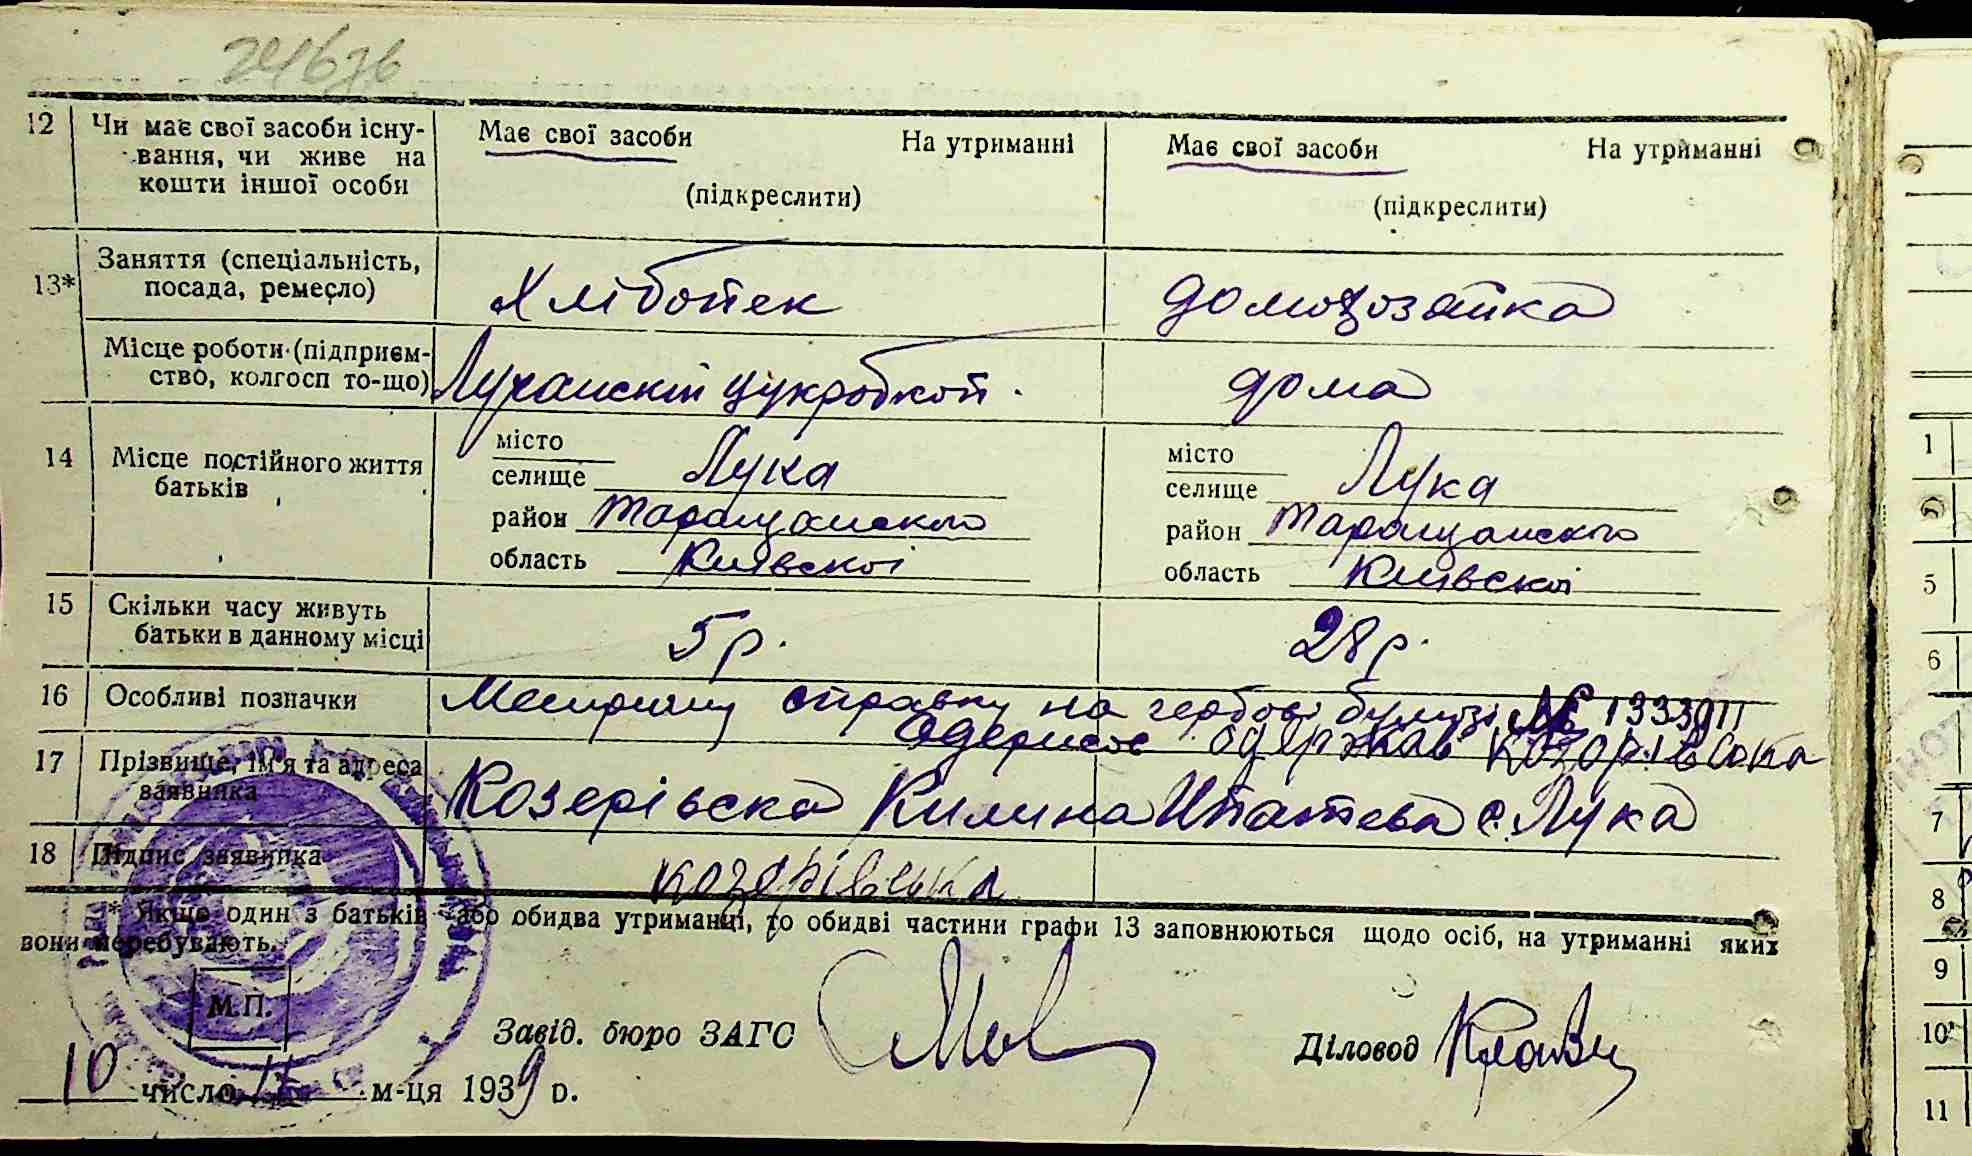 24636
12 Чи має свої засоби існу- Має свої засоби На утриманні Має свої засоби На утриманні
вання, чи живе на
кошти іншої особи (підкреслити) (підкреслити)
13* Заняття (спеціальність, Хлібопек домохозяйка
посада, ремесло)
Місце роботи (підприєм- дома
ство, колгосп то-що)
14 Місце постійного життя місто місто
батьків селище Лука селище Лука
район Таращанского район Таращанского
область Киівскоі область Киівскоі
15 Скільки часу живуть 5 р. 28 р.
батьки в данному місці
16 Особливі позначки Метричну справку на гербові бумузі №
одержав козорівська
17 Прізвище, ім'я та адреса
заявника Козерівска Килина Ипатева с. Лука
18 Підпис заявника козорівська
* Якщо один з батьків або обидва утриманці, то обидві частини графи 13 заповнюються щодо осіб, на утриманні яких
вони перебувають.
М.П.
Завід. бюро ЗАГС Діловод
10 число м-ця 1939 р.
1
5
6
7
8
9
10
11